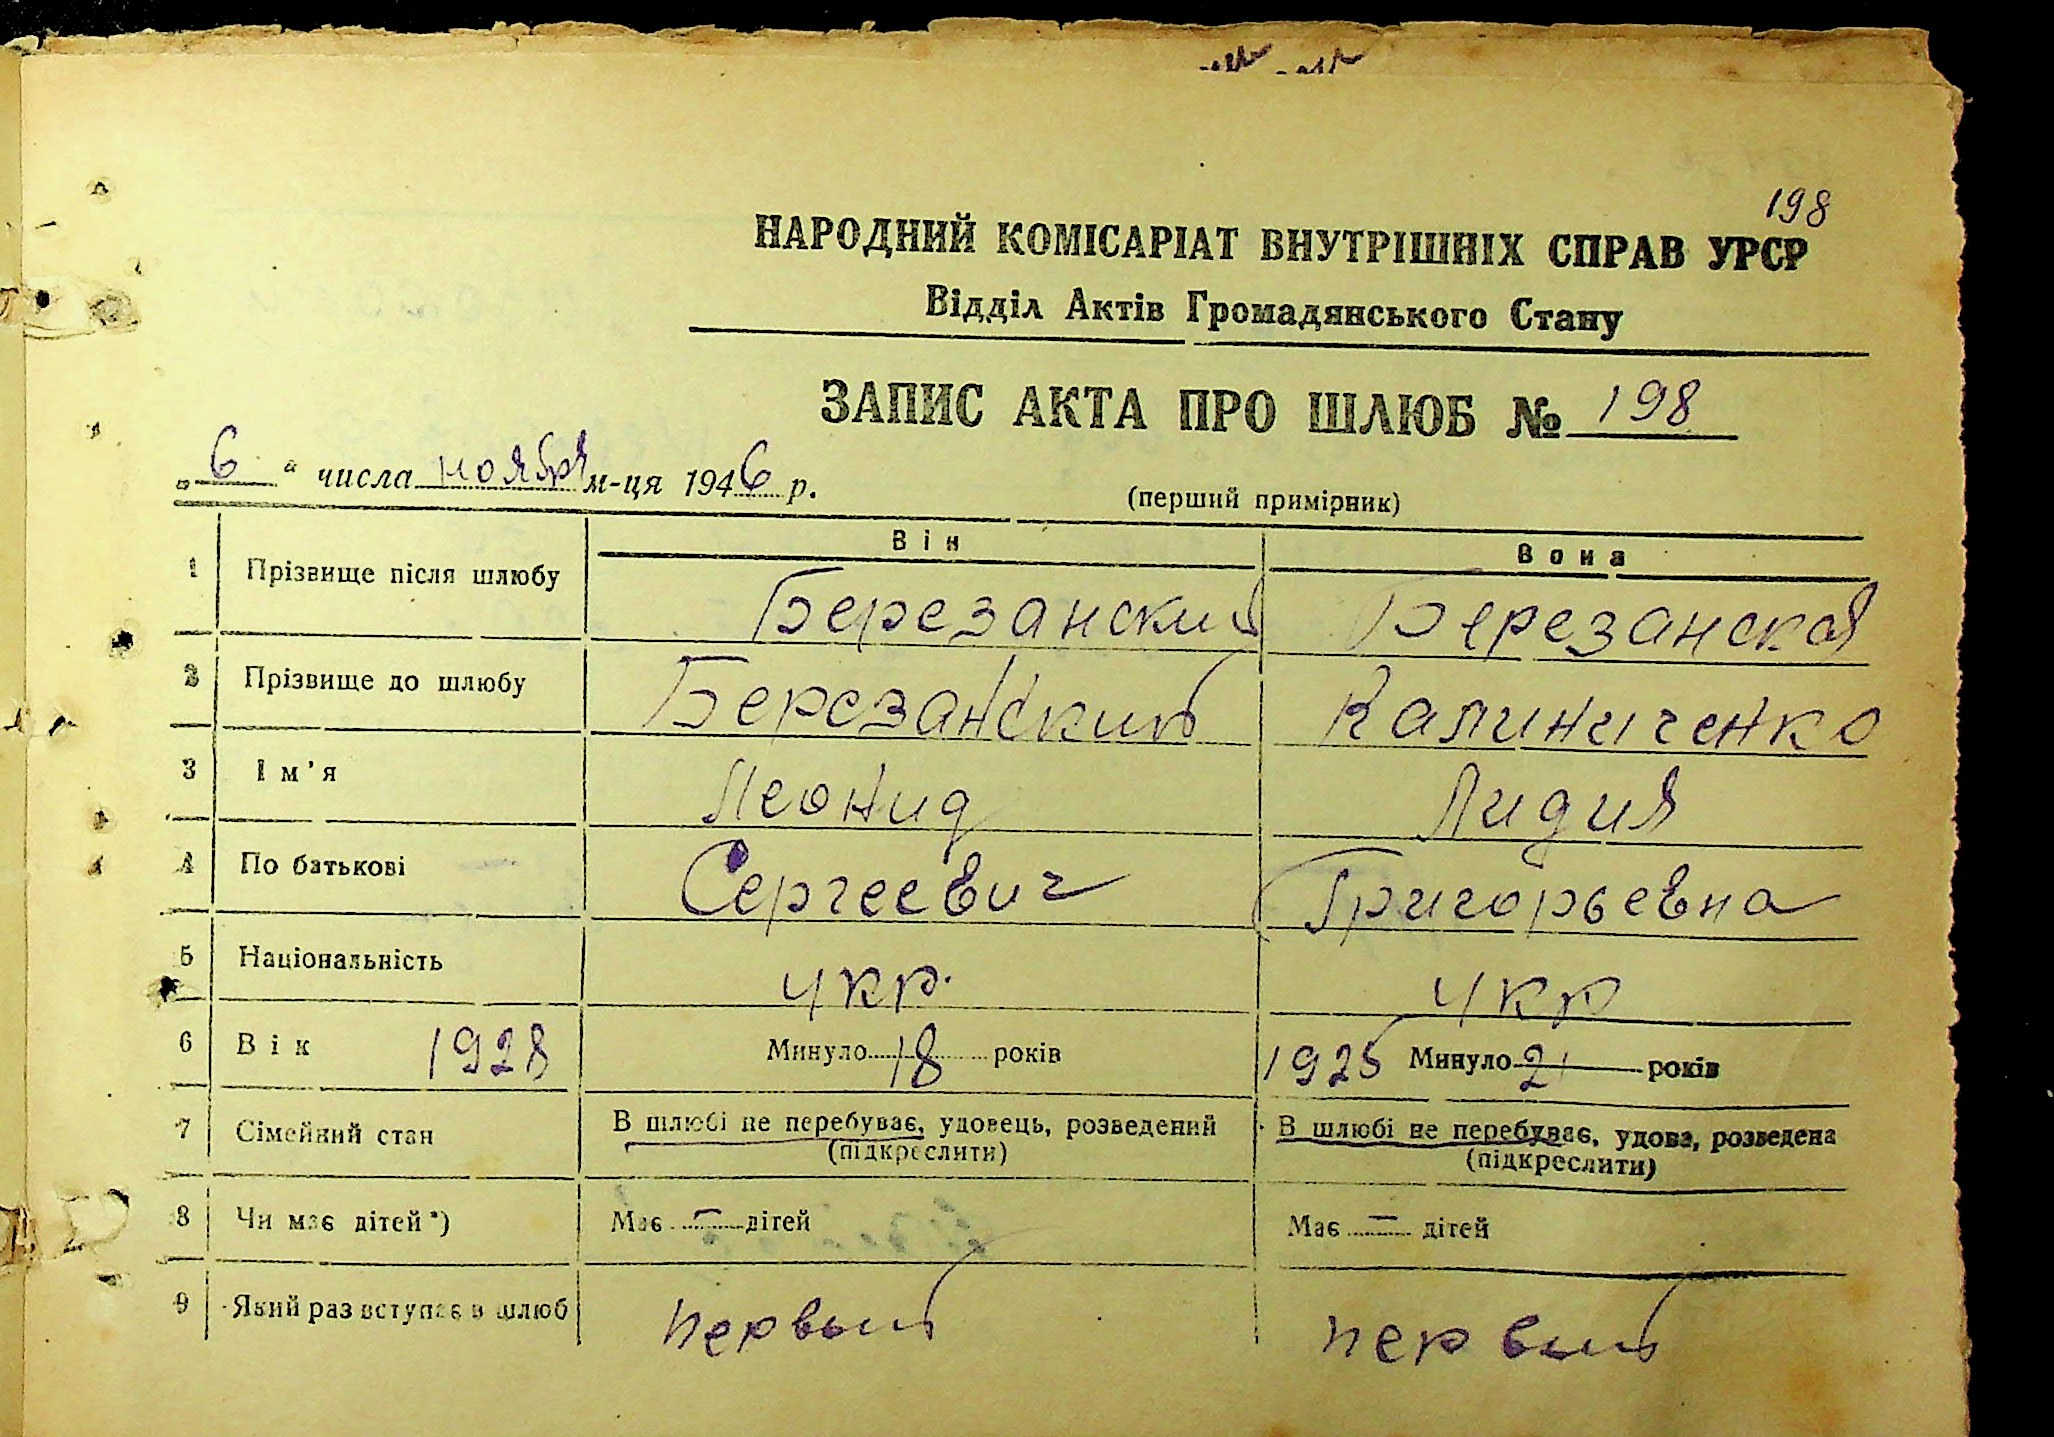 198
НАРОДНИЙ КОМІСАРІАТ ВНУТРІШНІХ СПРАВ УРСР
Відділ Актів Громадянського Стану
ЗАПИС АКТА ПРО ШЛЮБ № 198
„6“ числа ноября м-ця 1946 р.
(перший примірник)
Він Вона
1 Прізвище після шлюбу Березанский Березанская
2 Прізвище до шлюбу Березанский Калиниченко
3 Ім'я Леонид Лидия
4 По батькові Сергеевич Григорьевна
5 Національність укр. укр
6 Вік 1928 Минуло 18 років 1925 Минуло 21 років
7 Сімейний стан В шлюбі не перебуває, удовець, розведений В шлюбі не перебуває, удова, розведена
(підкреслити) (підкреслити)
8 Чи має дітей*) Має — дітей Має — дітей
9 Який раз вступає в шлюб первый первый